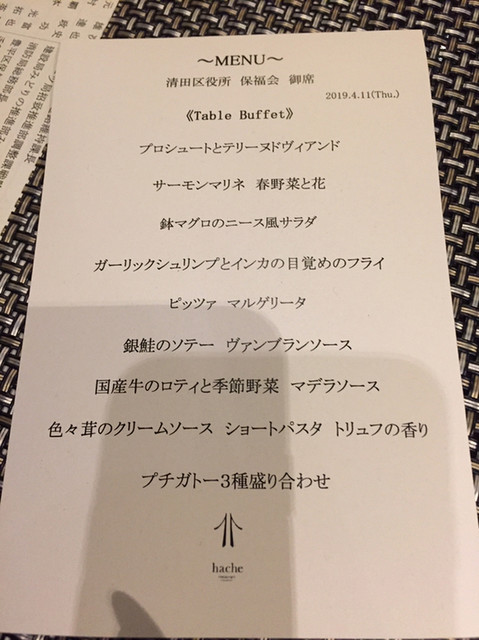 ～MENU～
清田区役所 保福会 御席
2019.4.11(Thu.)
《Table Buffet》
プロシュートとテリーヌドヴィアンド
サーモンマリネ 春野菜と花
鉢マグロのニース風サラダ
ガーリックシュリンプとインカの目覚めのフライ
ピッツァ マルゲリータ
銀鮭のソテー ヴァンブランソース
国産牛のロティと季節野菜 マデラソース
色々茸のクリームソース ショートパスタ トリュフの香り
プチガトー3種盛り合わせ
hache